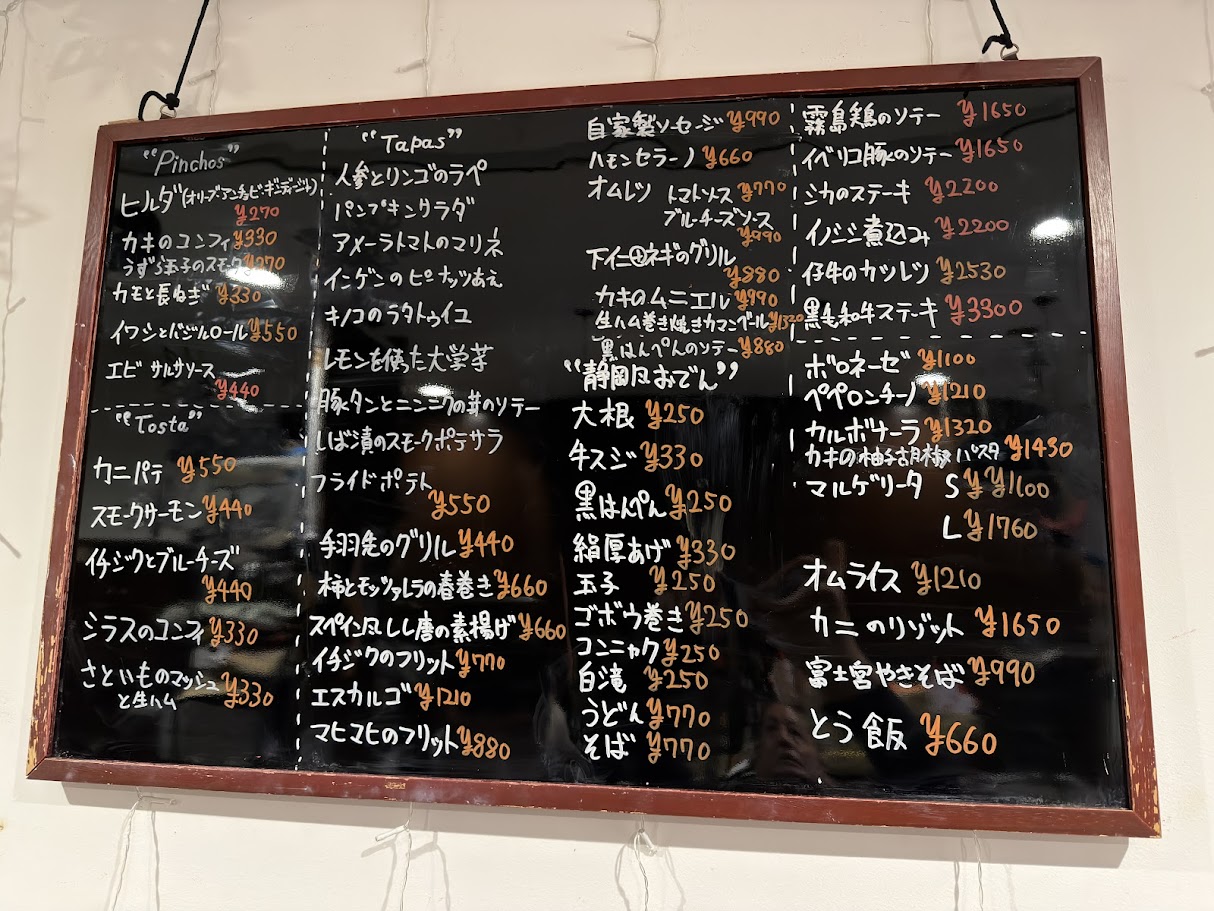 "Pinchos"
ヒルダ(オリーブ・アンチョビ・ギンディージャ)
¥270
カキのコンフィ ¥330
うずら玉子のスモーク ¥270
カモと長ねぎ ¥330
イワシとバジルロール ¥550
エビ サルサソース
¥440
"Tosta"
カニパテ ¥550
スモークサーモン ¥440
イチジクとブルーチーズ
¥440
シラスのコンフィ ¥330
さといものマッシュ
と生ハム ¥330
"Tapas"
人参とリンゴのラペ
パンプキンサラダ
アメーラトマトのマリネ
インゲンのピーナッツあえ
キノコのラタトゥイユ
レモンを使った大学芋
豚タンとニンニクの芽のソテー
しば漬のスモークポテサラ
フライドポテト
¥550
手羽先のグリル ¥440
柿とモッツァレラの春巻き ¥660
スペイン風しし唐の素揚げ ¥660
イチジクのフリット ¥770
エスカルゴ ¥1210
マヒマヒのフリット ¥880
自家製ソーセージ ¥990
ハモンセラーノ ¥660
オムレツ トマトソース ¥770
ブルーチーズソース
¥990
下仁田ネギのグリル
¥880
カキのムニエル ¥990
生ハム巻き焼きカマンベール ¥1320
黒はんぺんのソテー ¥880
"静岡風おでん"
大根 ¥250
牛スジ ¥330
黒はんぺん ¥250
絹厚あげ ¥330
玉子 ¥250
ゴボウ巻き ¥250
コンニャク ¥250
白滝 ¥250
うどん ¥770
そば ¥770
霧島鶏のソテー ¥1650
イベリコ豚のソテー ¥1650
シカのステーキ ¥2200
イノシシ煮込み ¥2200
仔牛のカツレツ ¥2530
黒毛和牛ステーキ ¥3300
ボロネーゼ ¥1100
ペペロンチーノ ¥1210
カルボナーラ ¥1320
カキの柚子胡椒パスタ ¥1430
マルゲリータ S ¥ ¥1100
L ¥1760
オムライス ¥1210
カニのリゾット ¥1650
富士宮やきそば ¥990
とう飯 ¥660